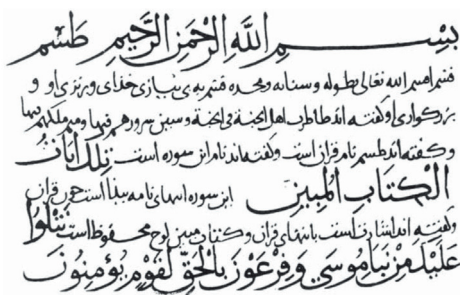 بِسْمِ اللَّهِ الرَّحْمَنِ الرَّحِيمِ طسم
قسم اقسم الله تعالى بطوله و سنائه و مجده قسم به بی نیازی خدای و برتری او و
بزرکواری او و کفته اند طا طرب اهل الجنة فی الجنة و سین سرورهم فیها و میم ملکهم فیها
و کفته اند طسم نام قران است و کفته اند نام این سوره است تِلْكَ آيَاتُ
الْكِتَابِ الْمُبِينِ این سوره ایتهای نامه پیدا است چون قران
و کفته اند اشارت است بایتهای قران و کتاب مبین لوح محفوظ است نَتْلُوا
عَلَيْكَ مِنْ نَبَإِ مُوسَى وَ فِرْعَوْنَ بِالْحَقِّ لِقَوْمٍ يُؤْمِنُونَ